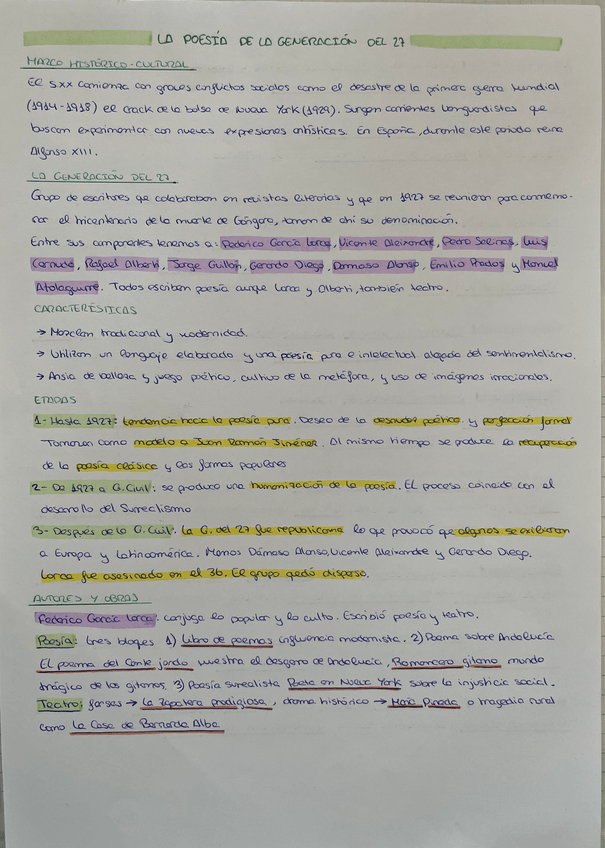 LA POESÍA DE LA GENERACIÓN DEL 27
MARCO HISTÓRICO-CULTURAL
El S.XX comienza con graves conflictos sociales como el desastre de la primera guerra mundial
(1914-1918) el crack de la bolsa de Nueva York (1929). Surgen corrientes vanguardistas que
buscan experimentar con nuevas expresiones artísticas. En España, durante este periodo reina
Alfonso XIII.
LA GENERACIÓN DEL 27
Grupo de escritores que colaboraban en revistas literarias y que en 1927 se reunieron para conmemo-
rar el tricentenario de la muerte de Góngora, toman de ahí su denominación.
Entre sus componentes tenemos a: Federico García Lorca, Vicente Aleixandre, Pedro Salinas, Luis
Cernuda, Rafael Alberti, Jorge Guillén, Gerardo Diego, Dámaso Alonso, Emilio Prados y Manuel
Atolaguirre. Todos escriben poesía aunqe Lorca y Alberti, también teatro.
CARACTERÍSTICAS
→ Mezclan tradicional y modernidad.
→ Utilizan un lenguaje elaborado y una poesía pura e intelectual alejada del sentimentalismo.
→ Ansia de belleza y juego poético, cultivo de la metáfora, y uso de imágenes irracionales.
ETAPAS
1- Hasta 1927: tendencia hacia la poesía pura. Deseo de la desnudez poética y perfección formal
Tomaron como modelo a Juan Ramón Jiménez. Al mismo tiempo se produce la recuperación
de la poesía clásica y las formas populares
2- De 1927 a G.Civil: se produce una humanización de la poesía. El proceso coincide con el
desarrollo del Surrealismo
3- Después de la G. Civil: la G. del 27 fue republicana lo que provocó que algunos se exiliaran
a Europa y Latinoamérica. Menos Dámaso Alonso, Vicente Aleixandre y Gerardo Diego.
Lorca fue asesinado en el 36. El grupo quedó disperso.
AUTORES Y OBRAS
Federico García Lorca: conjuga lo popular y lo culto. Escribió poesía y teatro.
Poesía: tres bloques 1) Libro de poemas influencia modernista. 2) Poema sobre Andalucía
El poema del Cante jondo muestra el desgarro de Andalucía, Romancero gitano mundo
trágico de los gitanos. 3) Poesía surrealista Poeta en Nueva York sobre la injusticia social.
Teatro: farsas → La Zapatera prodigiosa, drama histórico → Maria Pineda o tragedia rural
como La Casa de Bernarda Alba